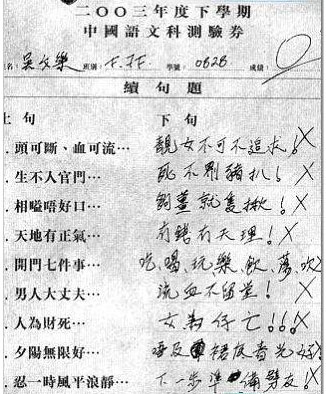 二〇〇三年度下學期
中國語文科測驗券
名：吳文樂 班別：F.5F. 學號：0828 成績：
續句題
上句 下句
．頭可斷、血可流… 靚女不可不追求！X
．生不入官門… 死不劏豬扒！X
．相嗌唔好口… 劏薑就隻揪！X
．天地有正氣… 冇錯冇天理！X
．開門七件事… 吃、喝、玩、樂、飲、蕩、吹 X
．男人大丈夫… 流血不留堂！X
．人為財死… 女為仔亡！！！X
．夕陽無限好… 唔及裙底春光好！
．忍一時風平浪靜… 下一步準備劈友！X